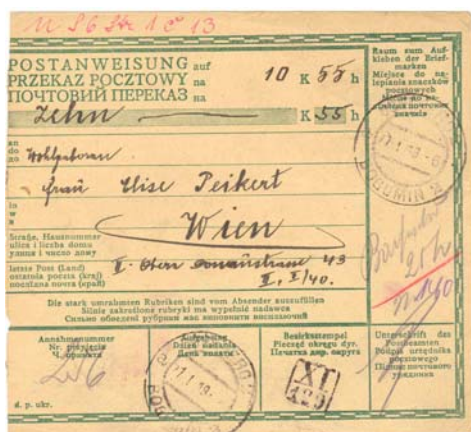 POSTANWEISUNG auf
PRZEKAZ POCZTOWY na
ПОЧТОВИЙ ПЕРЕКАЗ на
10 K 55 h
Zehn K 55 h
Raum zum Auf-
kleben der Brief-
marken
Miejsce do na-
lepiania znaczków
pocztowych
an
do
до
Wohlgeboren
Frau Elise Peikert
in
w
в
Wien
Straße, Hausnummer
ulica i liczba domu
улиця і число дому
II. Obere Donaustrasse 43
II, I/40.
letzte Post (Land)
ostatnia poczta (kraj)
послїдна почта (край)
Die stark umrahmten Rubriken sind vom Absender auszufüllen
Silnie zakreślone rubryki ma wypełnić nadawca
Сильно обведені рубрики має виповнити висилаючий
Annahmenummer
Nr. przyjęcia
Ч. приняття
256
Aufgabe
Dzień nadania
День надання
Bezirksstempel
Pieczęć okręgu dyr.
Печатка дир. округа
XI
429
Unterschrift des
Postbeamten
Podpis urzędnika
pocztowego
Підпис почтового
урядника
d. p. ukr.